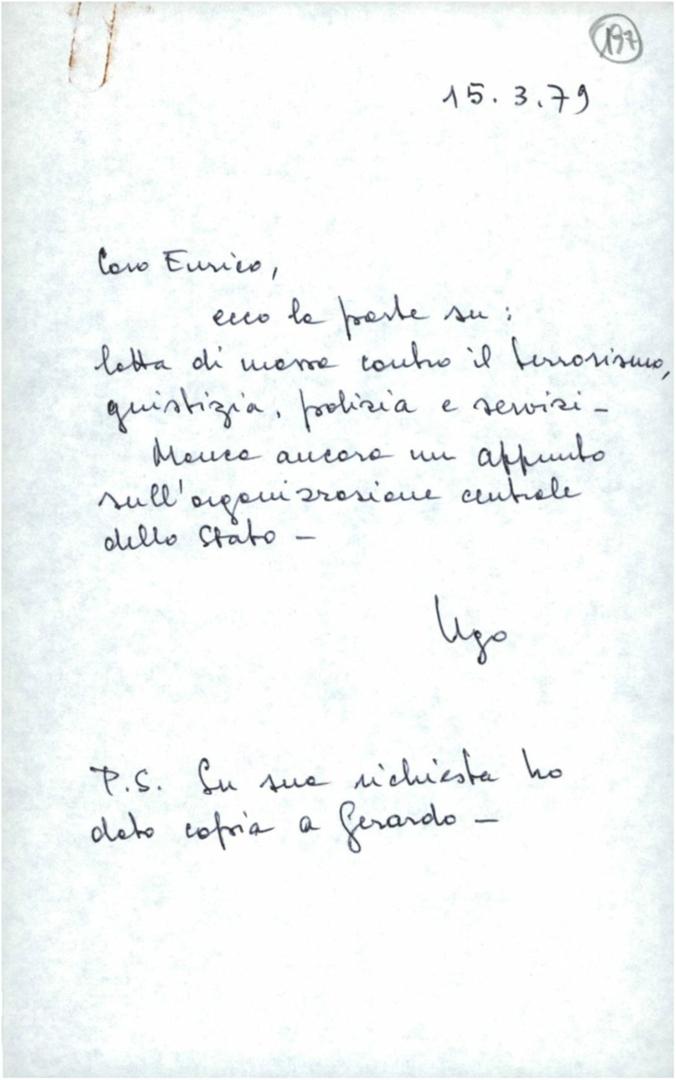 197
15.3.79
Caro Enrico,
ecco la parte su:
lotta di massa contro il terrorismo,
giustizia, polizia e servizi -
Manca ancora un appunto
sull'organizzazione centrale
dello Stato -
Ugo
P.S. Su sua richiesta ho
dato copia a Gerardo -